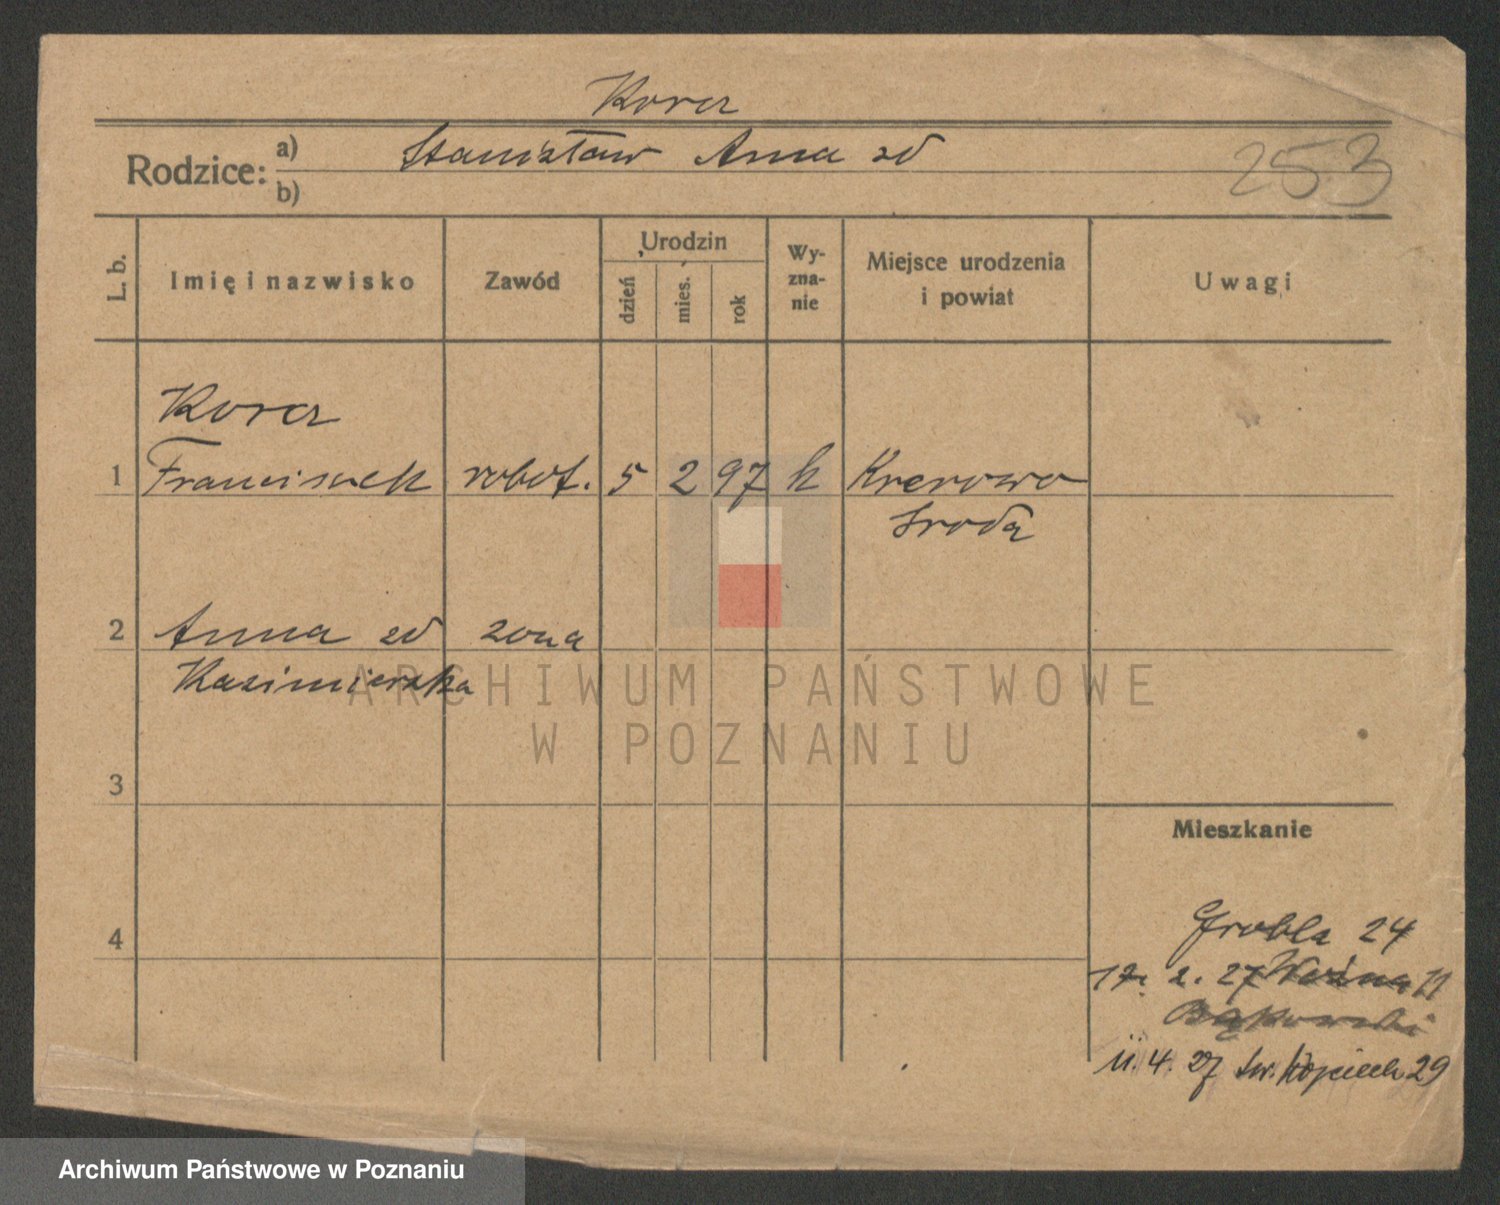 Korcz
Rodzice: a) Stanisław Anna zd
b)
253
L. b.
Imię i nazwisko
Zawód
Urodzin
dzień
mies.
rok
Wy-
zna-
nie
Miejsce urodzenia
i powiat
Uwagi
Korcz
1 Franciszek robot. 5 2 97 k Krerowo
Środa
2 Anna zd żona
Kazimierska
3
4
Mieszkanie
Grobla 24
17. 2. 27 Woźna 11
Bąkowski
11. 4. 27 św. Wojciech 29
ARCHIWUM PAŃSTWOWE
W POZNANIU
Archiwum Państwowe w Poznaniu